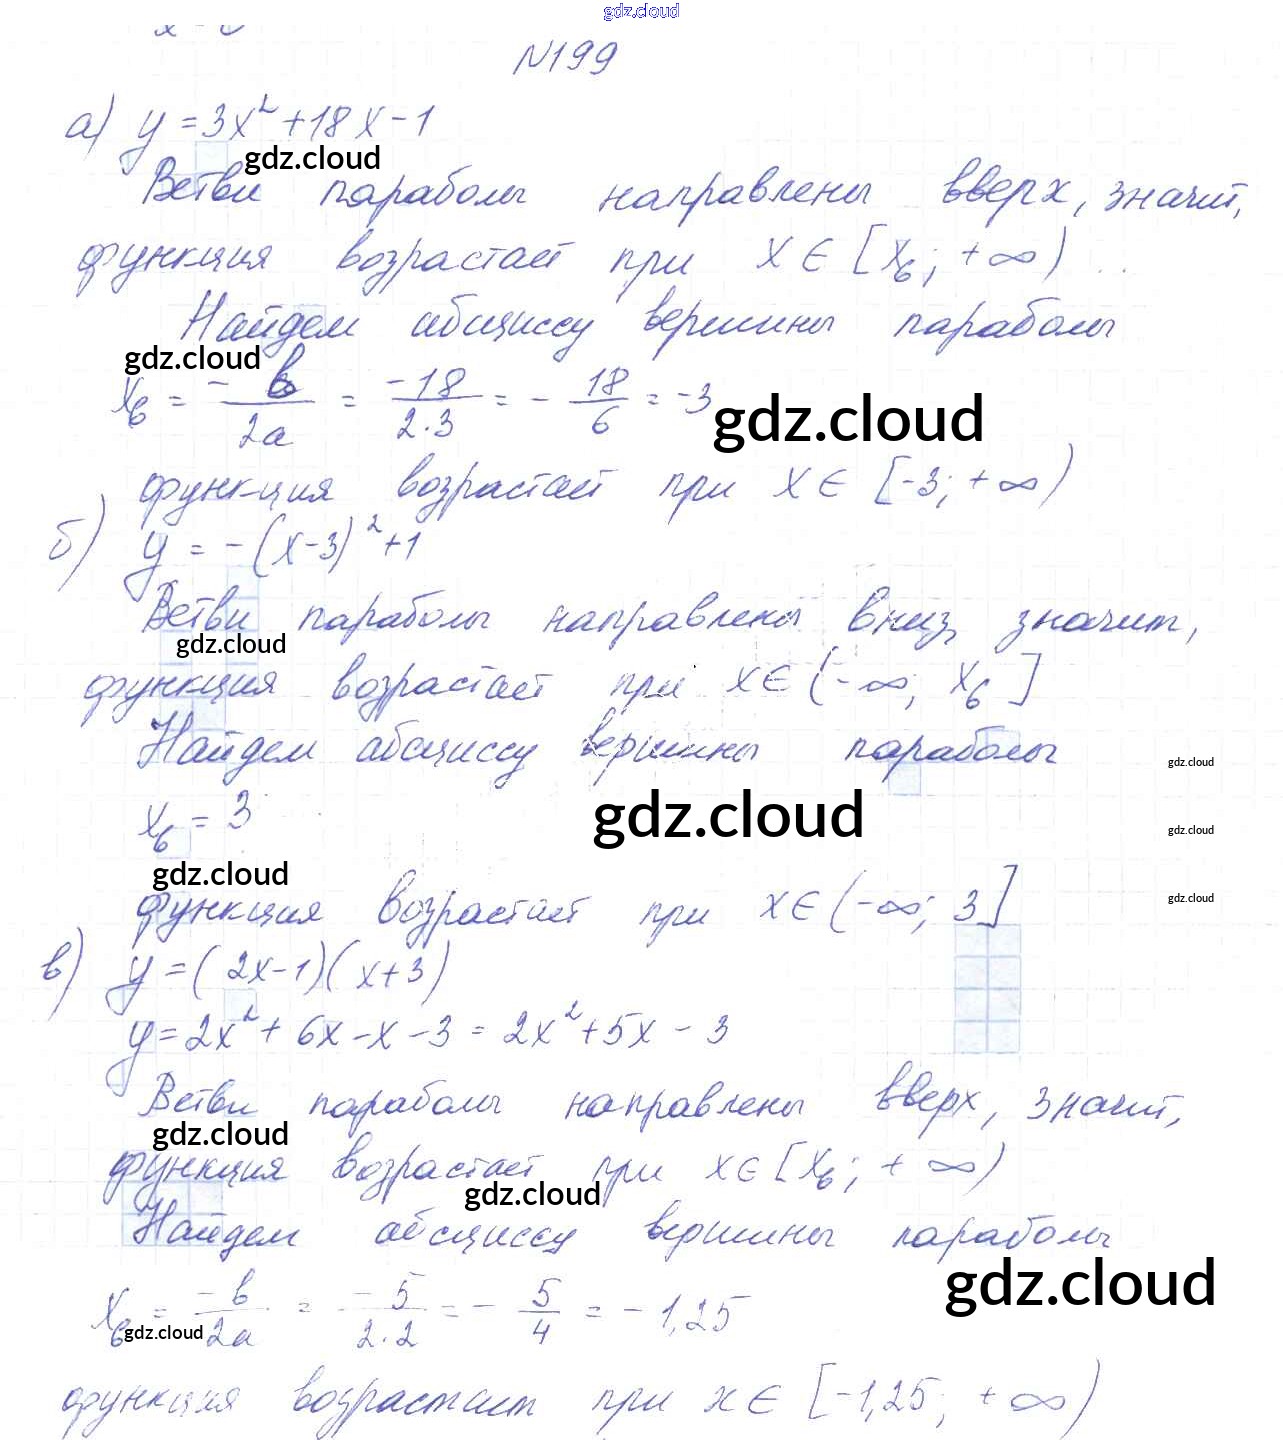 gdz.cloud
N199
а) y = 3x² + 18x - 1
gdz.cloud
Ветви параболы направлены вверх, значит,
функция возрастает при x ∈ [xв; +∞)
Найдем абсциссу вершины параболы
gdz.cloud
xв = -b/2a = -18/2·3 = - 18/6 = -3
gdz.cloud
функция возрастает при x ∈ [-3; +∞)
б) y = -(x-3)² + 1
Ветви параболы направлены вниз, значит,
gdz.cloud
функция возрастает при x ∈ (-∞; xв]
Найдем абсциссу вершины параболы
gdz.cloud
xв = 3
gdz.cloud
gdz.cloud
gdz.cloud
gdz.cloud
функция возрастает при x ∈ (-∞; 3]
в) y = (2x-1)(x+3)
y = 2x² + 6x - x - 3 = 2x² + 5x - 3
Ветви параболы направлены вверх, значит,
gdz.cloud
функция возрастает при x ∈ [xв; +∞)
gdz.cloud
Найдем абсциссу вершины параболы
gdz.cloud
xв = -b/2a = -5/2·2 = - 5/4 = -1,25
gdz.cloud
функция возрастает при x ∈ [-1,25; +∞)